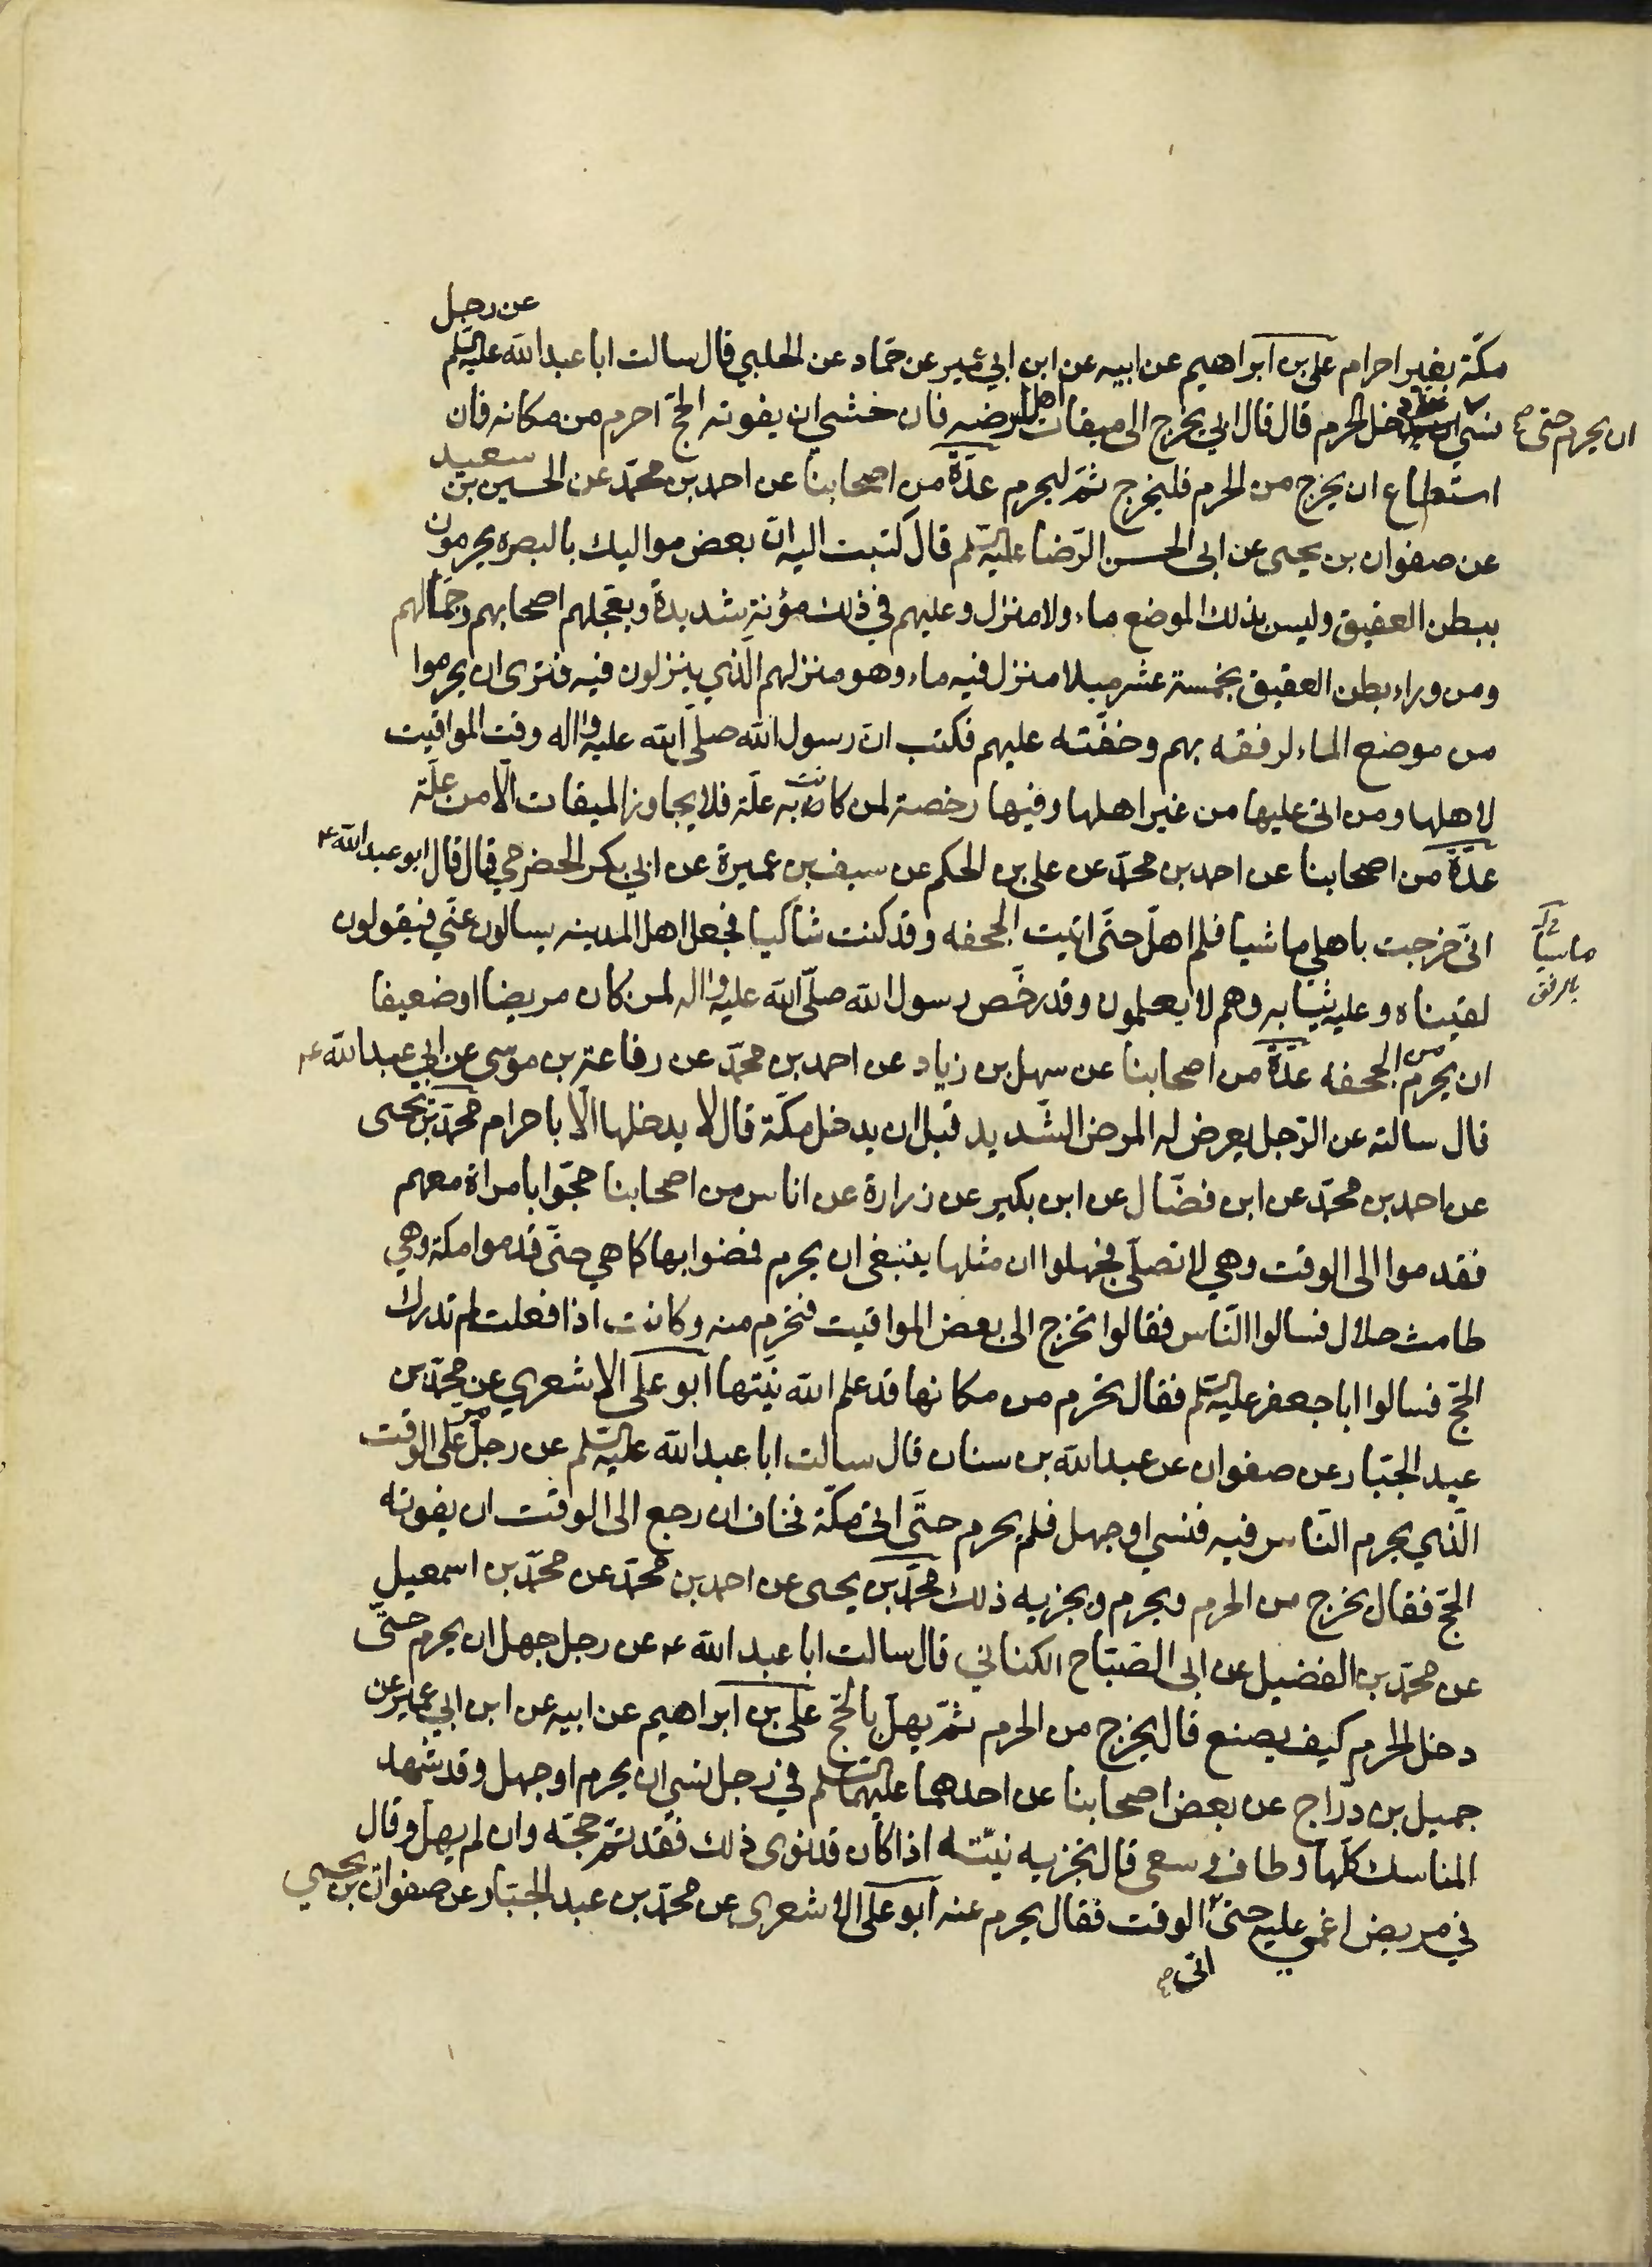 عن رجل
مكّة بغير احرام علي بن ابراهيم عن ابيه عن ابن ابي عمير عن حمّاد عن الحلبي قال سالت ابا عبد الله عليه السّلم
ان يحرم حتى صح
نسي دخل الحرم قال قال ابي يخرج الى ميقات اهل ارضه فان خشي ان يفوته الحجّ احرم من مكانه فان
استطاع ان يخرج من الحرم فليخرج ثمّ ليحرم عدّة من اصحابنا عن احمد بن محمّد عن الحسين بن سعيد
عن صفوان بن يحيى عن ابى الحسن الرّضا عليه السّلم قال كتبت اليه انّ بعض مواليك بالبصره يحرمون
ببطن العقيق وليس بذلك الموضع ماء ولا منزل وعليهم في ذلك مؤنة شديدة ويعجلهم اصحابهم وجمّالهم
ومن وراء بطن العقيق بخمسة عشر ميلا منزل فيه ماء وهو منزلهم الّذي ينزلون فيه فترى ان يحرموا
من موضع الماء لرفقه بهم وخفّته عليهم فكتب انّ رسول الله صلّى الله عليه واله وقت المواقيت
لاهلها ومن اتى عليها من غير اهلها وفيها رخصة لمن كانت به علّة فلا يجاوز الميقات الّا من علّة
عدّة من اصحابنا عن احمد بن محمّد عن علي بن الحكم عن سيف بن عميرة عن ابي بكر الحضرمي قال قال ابو عبد الله ع
انّي خرجت باهلي ماشيا فلم اهلّ حتّى اتيت الجحفه وقد كنت شاكيا فجعل اهل المدينه يسالون عنّي فيقولون
لقيناه وعليه ثيابه وهم لا يعلمون وقد رخّص رسول الله صلّى الله عليه واله لمن كان مريضا او ضعيفا
ان يحرم من الجحفه عدّة من اصحابنا عن سهل بن زياد عن احمد بن محمّد عن رفاعة بن موسى عن ابي عبد الله ع
قال سالته عن الرّجل يعرض له المرض الشّديد قبل ان يدخل مكّة قال لا يدخلها الّا باحرام محمّد بن يحيى
عن احمد بن محمّد عن ابن فضّال عن ابن بكير عن زرارة عن اناس من اصحابنا حجّوا بامراة معهم
فقدموا الى الوقت وهي لا تصلّي فجهلوا ان مثلها ينبغي ان يحرم فمضوا بها كما هي حتّى قدموا مكة وهي
طامث حلال فسالوا النّاس فقالوا تخرج الى بعض المواقيت فتحرم منه وكانت اذا فعلت لم تدرك
الحجّ فسالوا ابا جعفر عليه السّلم فقال تحرم من مكانها قد علم الله نيّتها ابو علي الاشعري عن محمّد بن
عبد الجبّار عن صفوان عن عبد الله بن سنان قال سالت ابا عبد الله عليه السّلم عن رجل مرّ على الوقت
الّذي يحرم النّاس فيه فنسي او جهل فلم يحرم حتّى اتى مكّة فخاف ان رجع الى الوقت ان يفوته
الحجّ فقال يخرج من الحرم ويحرم ويجزيه ذلك محمّد بن يحيى عن احمد بن محمّد عن محمّد بن اسمعيل
عن محمّد بن الفضيل عن ابى الصّبّاح الكناني قال سالت ابا عبد الله ع عن رجل جهل ان يحرم حتّى
دخل الحرم كيف يصنع قال يخرج من الحرم ثمّ يهلّ بالحجّ علي بن ابراهيم عن ابيه عن ابن ابي عمير عن
جميل بن درّاج عن بعض اصحابنا عن احدهما عليهما السّلم في رجل نسي ان يحرم او جهل وقد شهد
المناسك كلّها وطاف وسعى قال تجزيه نيّته اذا كان قد نوى ذلك فقد تمّ حجّه وان لم يهلّ وقال
في مريض اغمي عليه حتى الوقت فقال يحرم عنه ابو علي الاشعرى عن محمّد بن عبد الجبّار عن صفوان بن يحيى
اتى صح